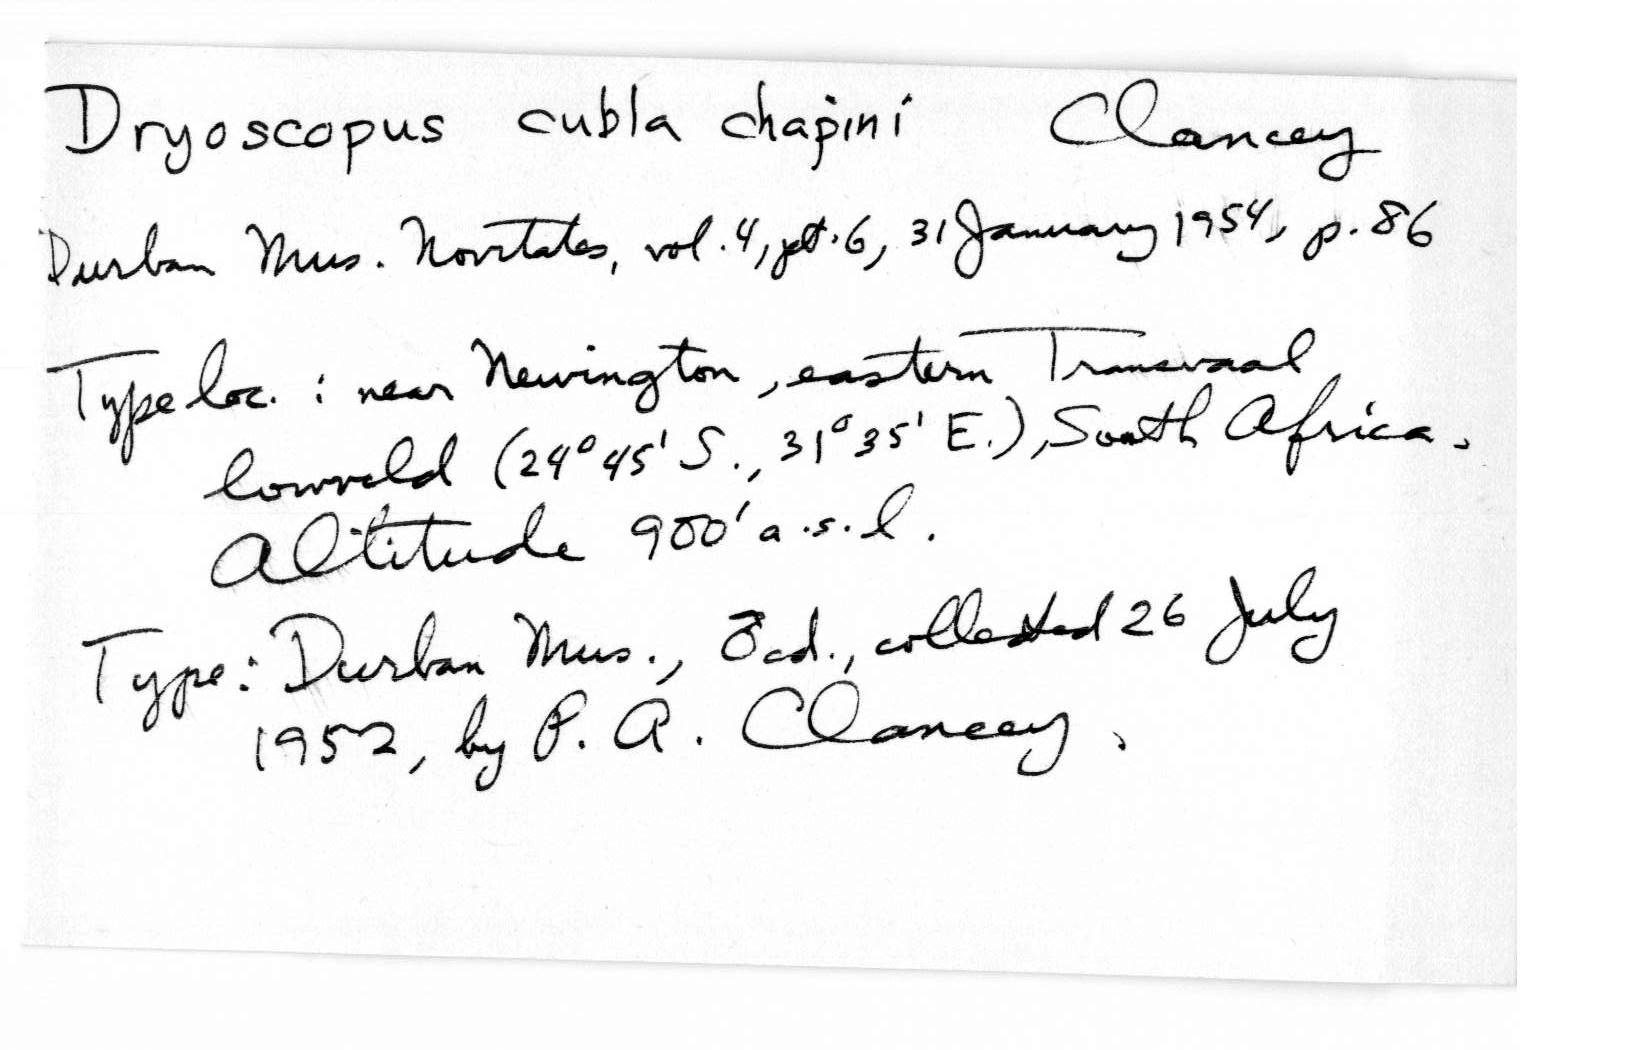 Dryoscopus cubla chapini Clancey
Durban Mus. Novitates, vol. 4, pt. 6, 31 January 1954, p. 86
Type loc. : near Newington, eastern Transvaal
lowveld (24° 45' S., 31° 35' E.), South Africa.
Altitude 900' a.s.l.
Type: Durban Mus., ♂ ad., collected 26 July
1952, by P. A. Clancey.